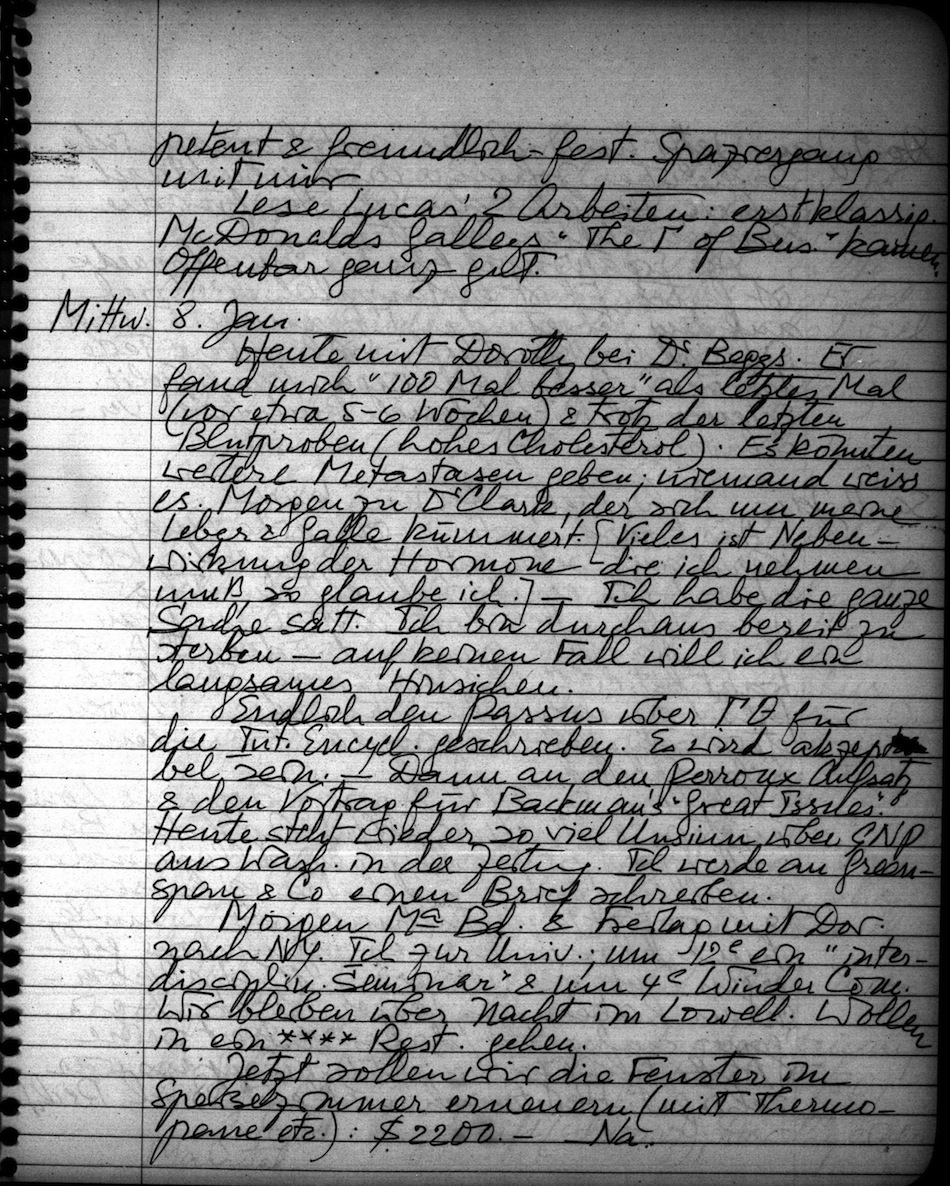 petent & freundlich-fest. Spaziergang
mit mir
Lese Lucas' 2 Arbeiten: erstklassig.
McDonalds Galleys "The Γ of Bus." kamen.
Offenbar ganz gut.
Mittw. 8. Jan.
Heute mit Dorothy bei Dr Beggs. Er
fand mich "100 Mal besser" als letztes Mal
(vor etwa 5-6 Wochen) & trotz der letzten
Blutproben (hohes Cholesterol). Es könnten
weitere Metastasen geben; niemand weiss
es. Morgen zu Dr Clark, der sich um meine
Leber & Galle kümmert. [Vieles ist Neben-
wirkung der Hormone die ich nehmen
muß, so glaube ich.] — Ich habe die ganze
Sache satt. Ich bin durchaus bereit zu
sterben — auf keinen Fall will ich ein
langsames Hinsiechen.
Endlich den Passus über Γθ für
die Int. Encycl. geschrieben. Es wird akzepta
bel sein. — Dann an den Perroux Aufsatz
& den Vortrag für Backman's "Great Issues".
Heute steht wieder so viel Unsinn über GNP
aus Wash. in der Zeitung. Ich werde an Green-
span & Co einen Brief schreiben.
Morgen Ma Bd. & Freitag mit Dor.
nach NY. Ich zur Univ.; um 12e ein "inter-
disciplin. Seminar" & um 4e Winder Com.
Wir bleiben über Nacht im Lowell. Wollen
in ein **** Rest. gehen.
Jetzt sollen wir die Fenster im
Speisezimmer erneuern (mit Thermo-
pane etc.): $2200.— Na.